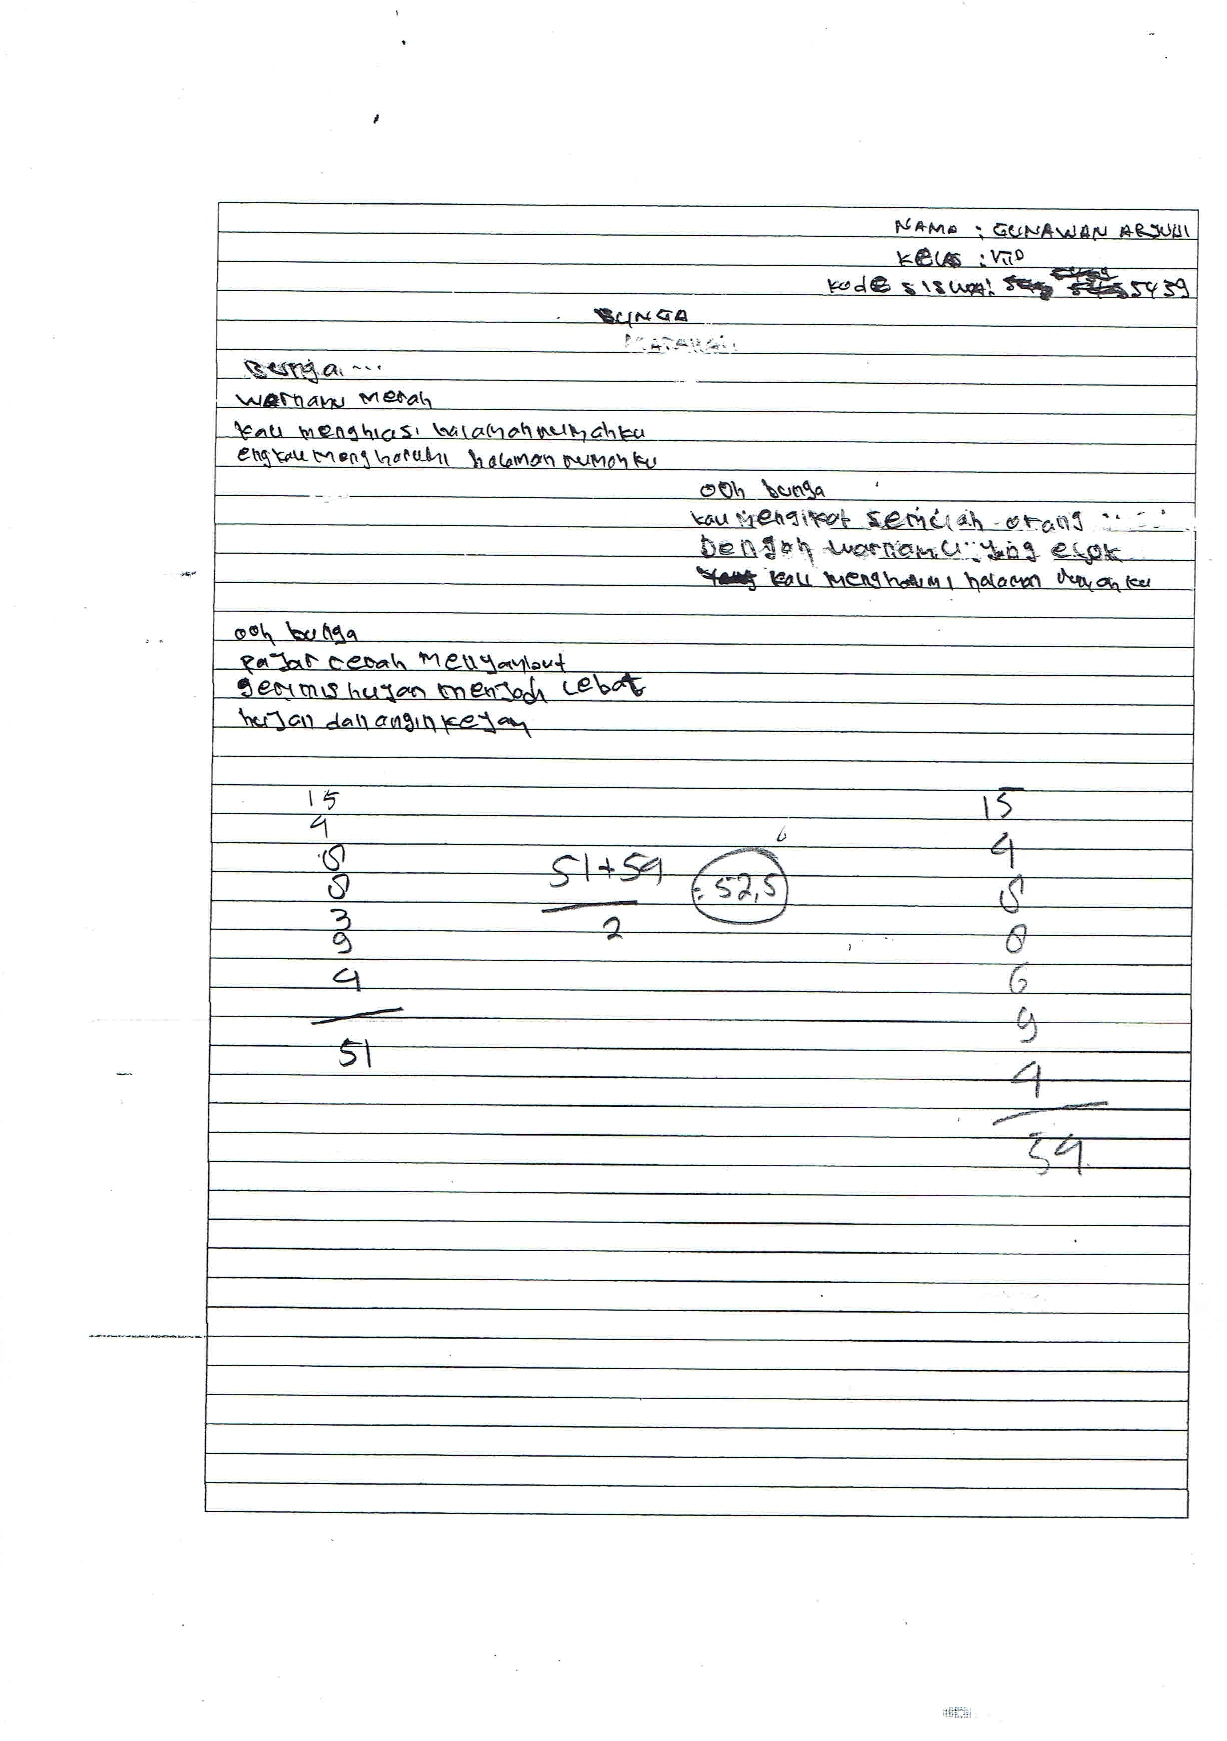 NAMA : GUNAWAN ARJUNI
KELAS : VIID
kode siswa: 5439
BUNGA
MATAHARI
Bunga ...
warnamu merah
kau menghiasi halaman rumahku
engkau mengharumi halaman rumahku
ooh bunga
kau mengikat semulah orang
Dengan warnamu yang elok
kau mengharumi halaman
ooh bunga
Fajar cerah menyambut
gerimis hujan menjadi lebat
hujan dan angin kejam
15
4
8
8
3
9
4
51
51+54
2
= 52,5
15
4
8
8
6
9
4
54